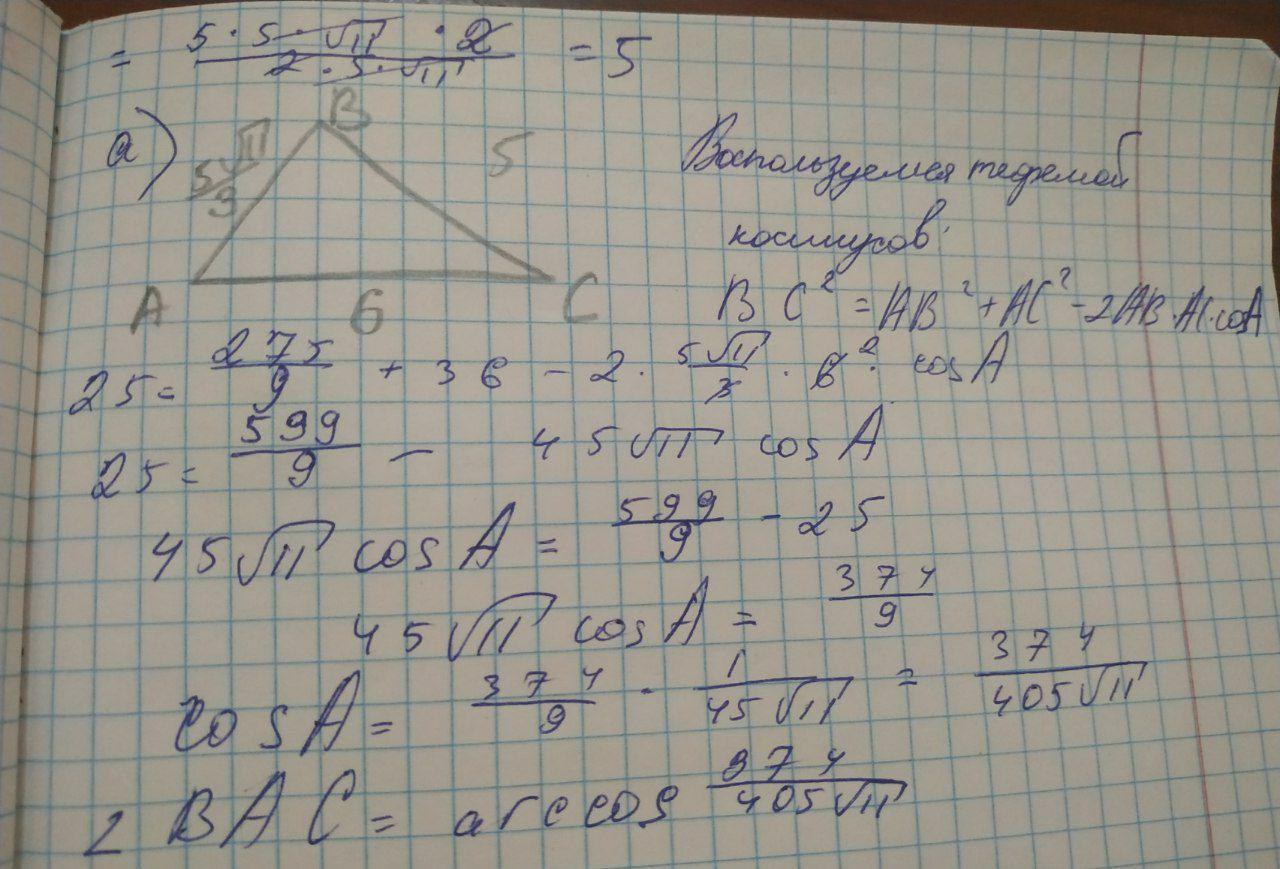 = (5 · 5 · √11 · 2) / (2 · 5 · √11) = 5
а) B
5√11/3 5
Воспользуемся теоремой
косинусов:
A 6 C
BC² = AB² + AC² - 2AB · AC · cosA
25 = 275/9 + 36 - 2 · 5√11/3 · 6² · cosA
25 = 599/9 - 45√11 cosA
45√11 cosA = 599/9 - 25
45√11 cosA = 374/9
cosA = 374/9 · 1/(45√11) = 374/(405√11)
∠BAC = arccos 374/(405√11)